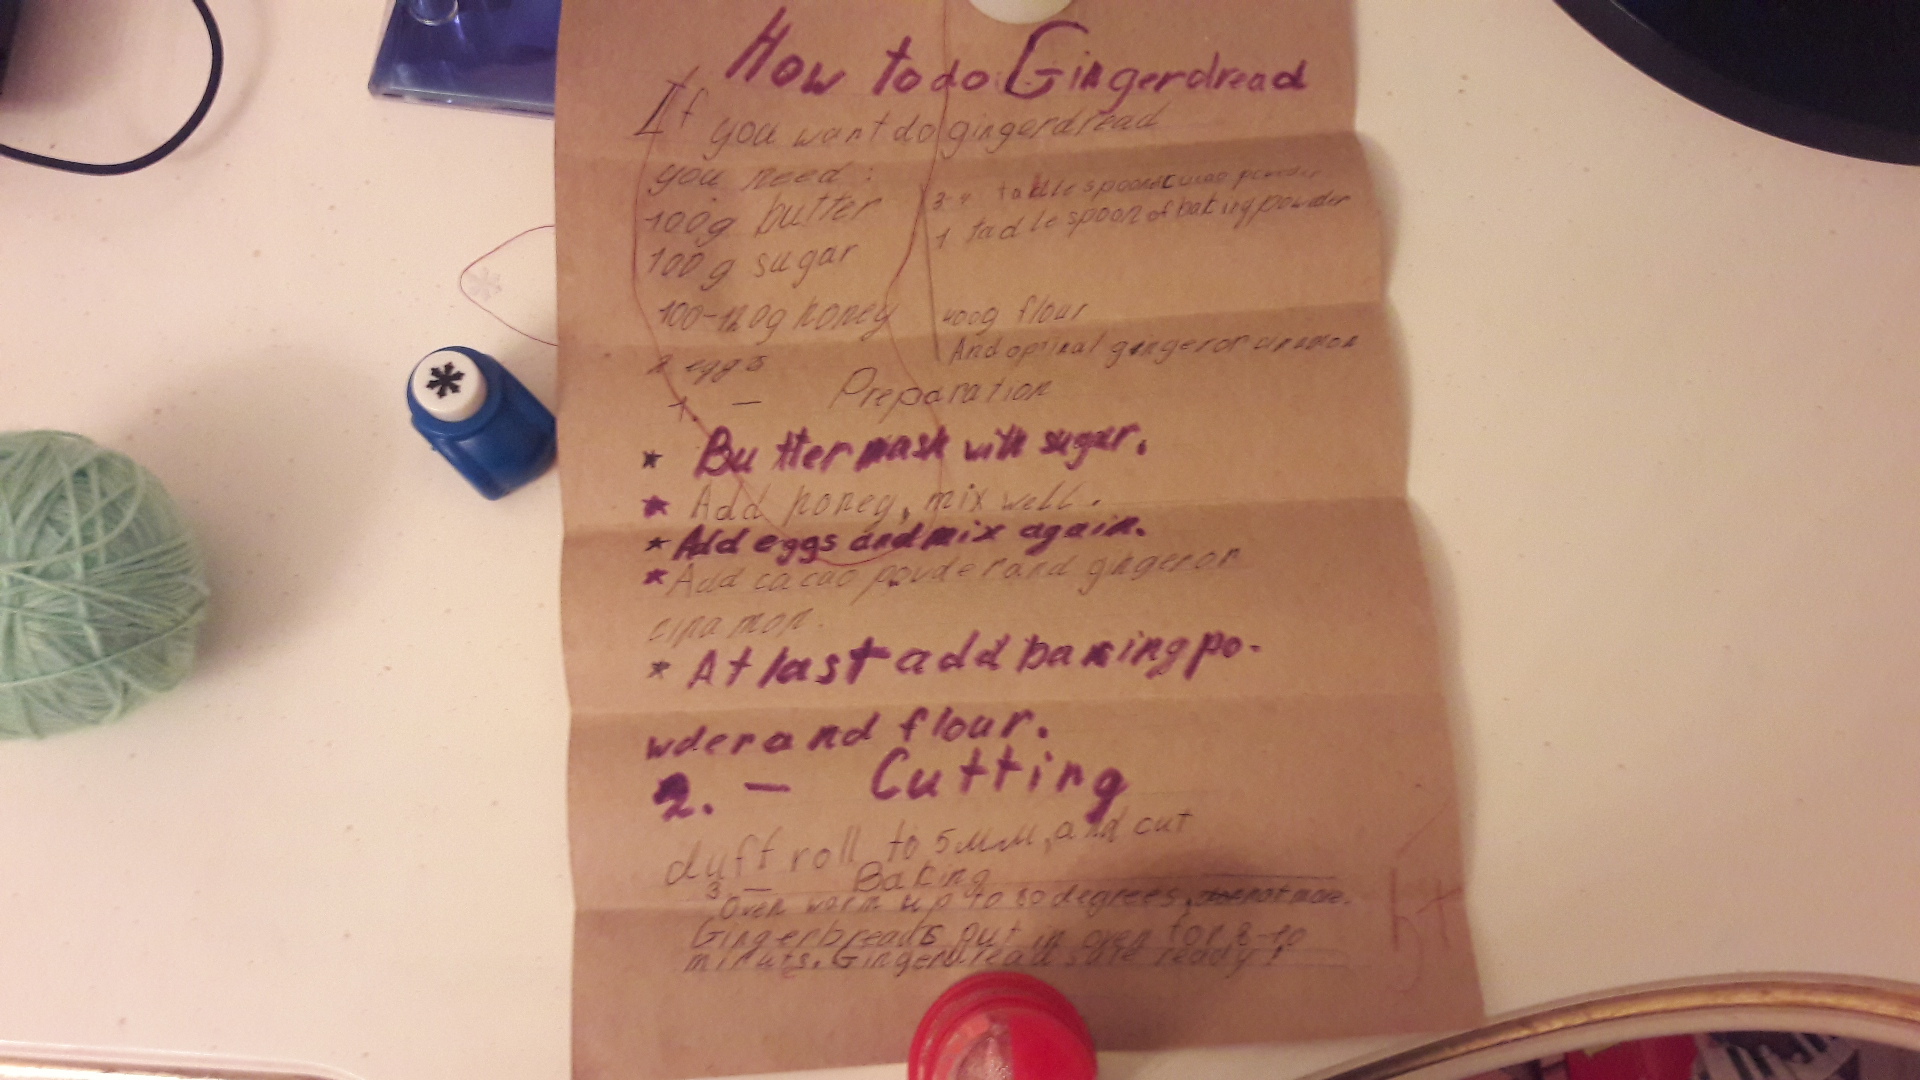 How to do Gingerdread
If you want do gingerdread
you need:
100g butter
100g sugar
100-120g honey
2 eggs
table spoons cacao powder
1 tadle spoon of baking powder
400g flour
And optinal ginger or cinamon
1. — Preparation
* Butter mash with sugar.
* Add honey, mix well.
* Add eggs and mix again.
* Add cacao powder and ginger or
cinamon.
* At last add baking po-
wder and flour.
2. — Cutting
duft roll to 5 мм, and cut
3. — Baking
Oven warm up to 80 degrees, not more.
Gingerbreads put in oven for 8-10
minuts. Gingerdreads are ready!
5+